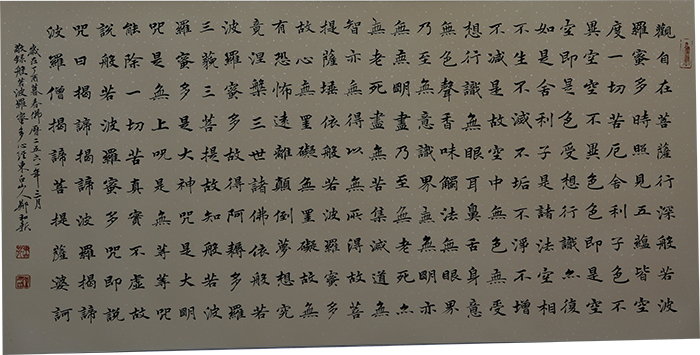 觀自在菩薩行深般若波
羅蜜多時照見五蘊皆空
度一切苦厄舍利子色不
異空空不異色色即是空
空即是色受想行識亦復
如是舍利子是諸法空相
不生不滅不垢不淨不增
不減是故空中無色無受
想行識無眼耳鼻舌身意
無色聲香味觸法無眼界
乃至無意識界無無明亦
無無明盡乃至無老死亦
無老死盡無苦集滅道無
智亦無得以無所得故菩
提薩埵依般若波羅蜜多
故心無罣礙無罣礙故無
有恐怖遠離顛倒夢想究
竟涅槃三世諸佛依般若
波羅蜜多故得阿耨多羅
三藐三菩提故知般若波
羅蜜多是大神咒是大明
咒是無上咒是無等等咒
能除一切苦真實不虛故
說般若波羅蜜多咒即說
咒曰揭諦揭諦波羅揭諦
波羅僧揭諦菩提薩婆訶
歲在丁酉暮春佛曆二五六一年三月
敬錄般若波羅蜜多心經東山人鄭